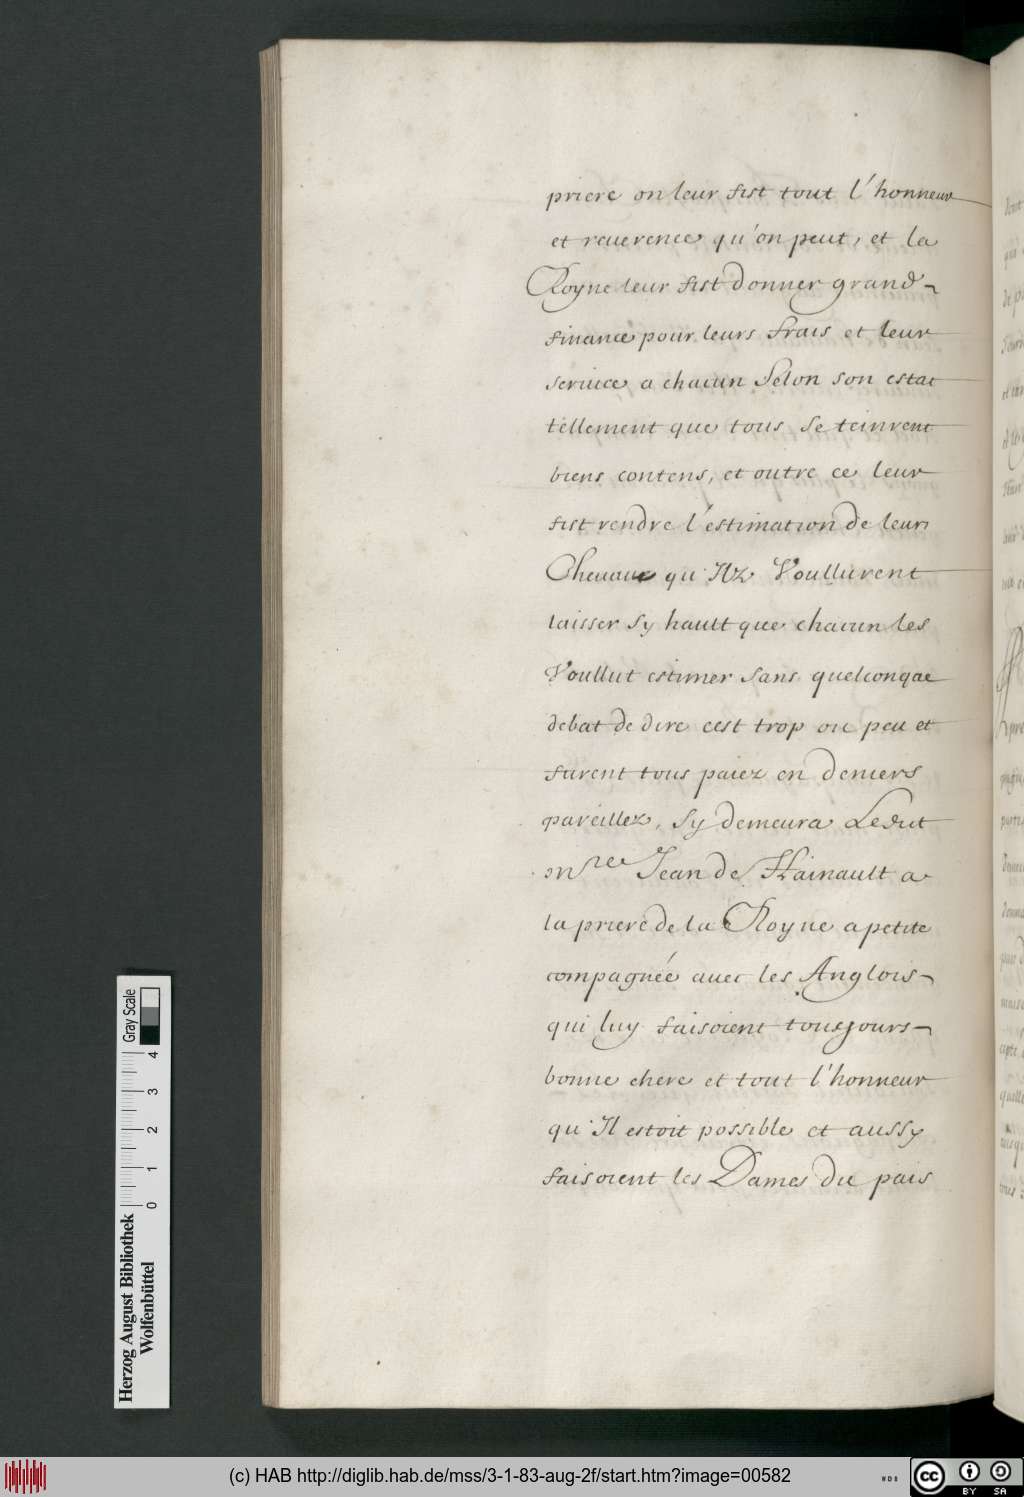 priere on leur fist tout l'honneur
et reuerence qu'on peut, et la
Royne leur fist donner grand
finance pour leurs frais et leur
seruice a chacun Selon son estat
tellement que tous se teinrent
biens contens, et outre ce leur
fist rendre l'estimation de leurs
Cheuaux qu'Ilz Voullurent
laisser Sy hault que chacun les
Voullut estimer sans quelconque
debat de dire cest trop ou peu et
furent tous paiez en deniers
pareillez, Sy demeura Ledict
mre Jean de Hainault a
la priere de la Royne a petite
compagnée auec les Anglois
qui luy faisoient tousjours
bonne chere et tout l'honneur
qu'Il estoit possible et aussy
faisoient les Dames du pais
Herzog August Bibliothek
Wolfenbüttel
0 1 2 3 4
Gray Scale
(c) HAB http://diglib.hab.de/mss/3-1-83-aug-2f/start.htm?image=00582
WDB
cc BY SA